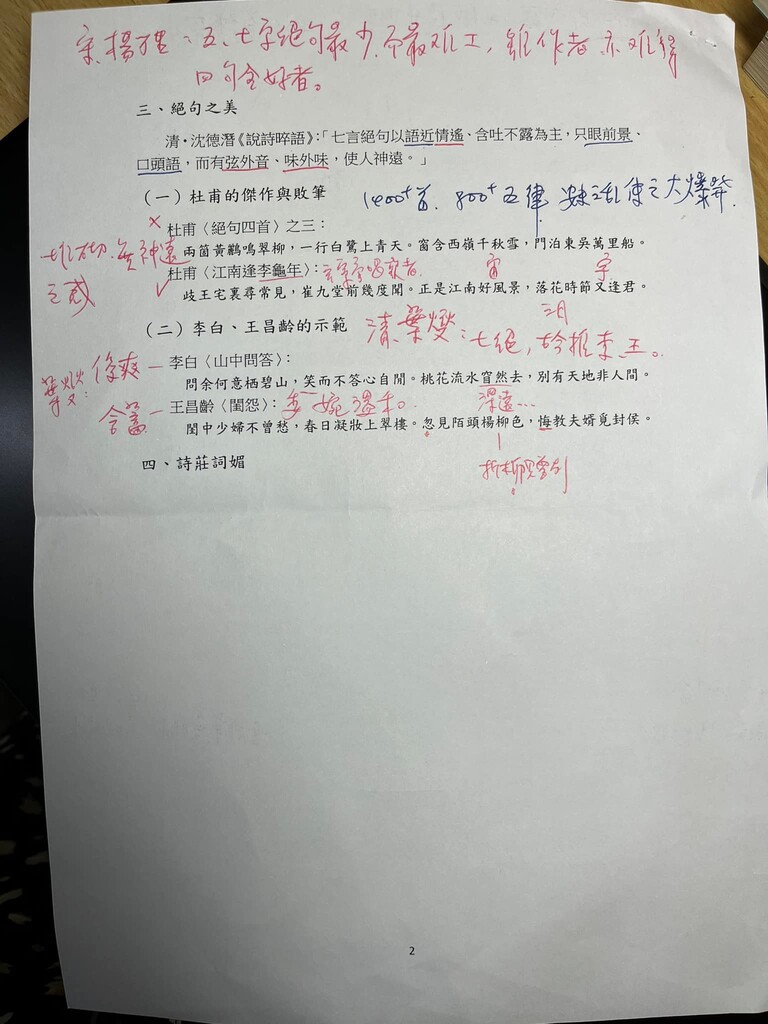 宋楊理：五、七字絕句最少,而最难工,雖作者亦难得
四句全好者。
三、絕句之美
清・沈德潛《說詩晬語》：「七言絕句以語近情遙、含吐不露為主，只眼前景、
口頭語，而有弦外音、味外味，使人神遠。」
（一）杜甫的傑作與敗筆
1400+首. 800+五律 安史之乱使之大爆發.
×
杜甫〈絕句四首〉之三：
兩箇黃鸝鳴翠柳，一行白鷺上青天。窗含西嶺千秋雪，門泊東吳萬里船。
堆砌.無神遠
之感
✓
杜甫〈江南逢李龜年〉：
宙
宇
歧王宅裏尋常見，崔九堂前幾度聞。正是江南好風景，落花時節又逢君。
三月
（二）李白、王昌齡的示範
清葉燮：七絕,古今推李王。
葉燮：
俊爽 —
李白〈山中問答〉：
問余何意栖碧山，笑而不答心自閒。桃花流水窅然去，別有天地非人間。
深遠…
含蓄 —
王昌齡〈閨怨〉：
委婉溫和。
閨中少婦不曾愁，春日凝妝上翠樓。忽見陌頭楊柳色，悔教夫婿覓封侯。
折柳贈別
四、詩莊詞媚
2